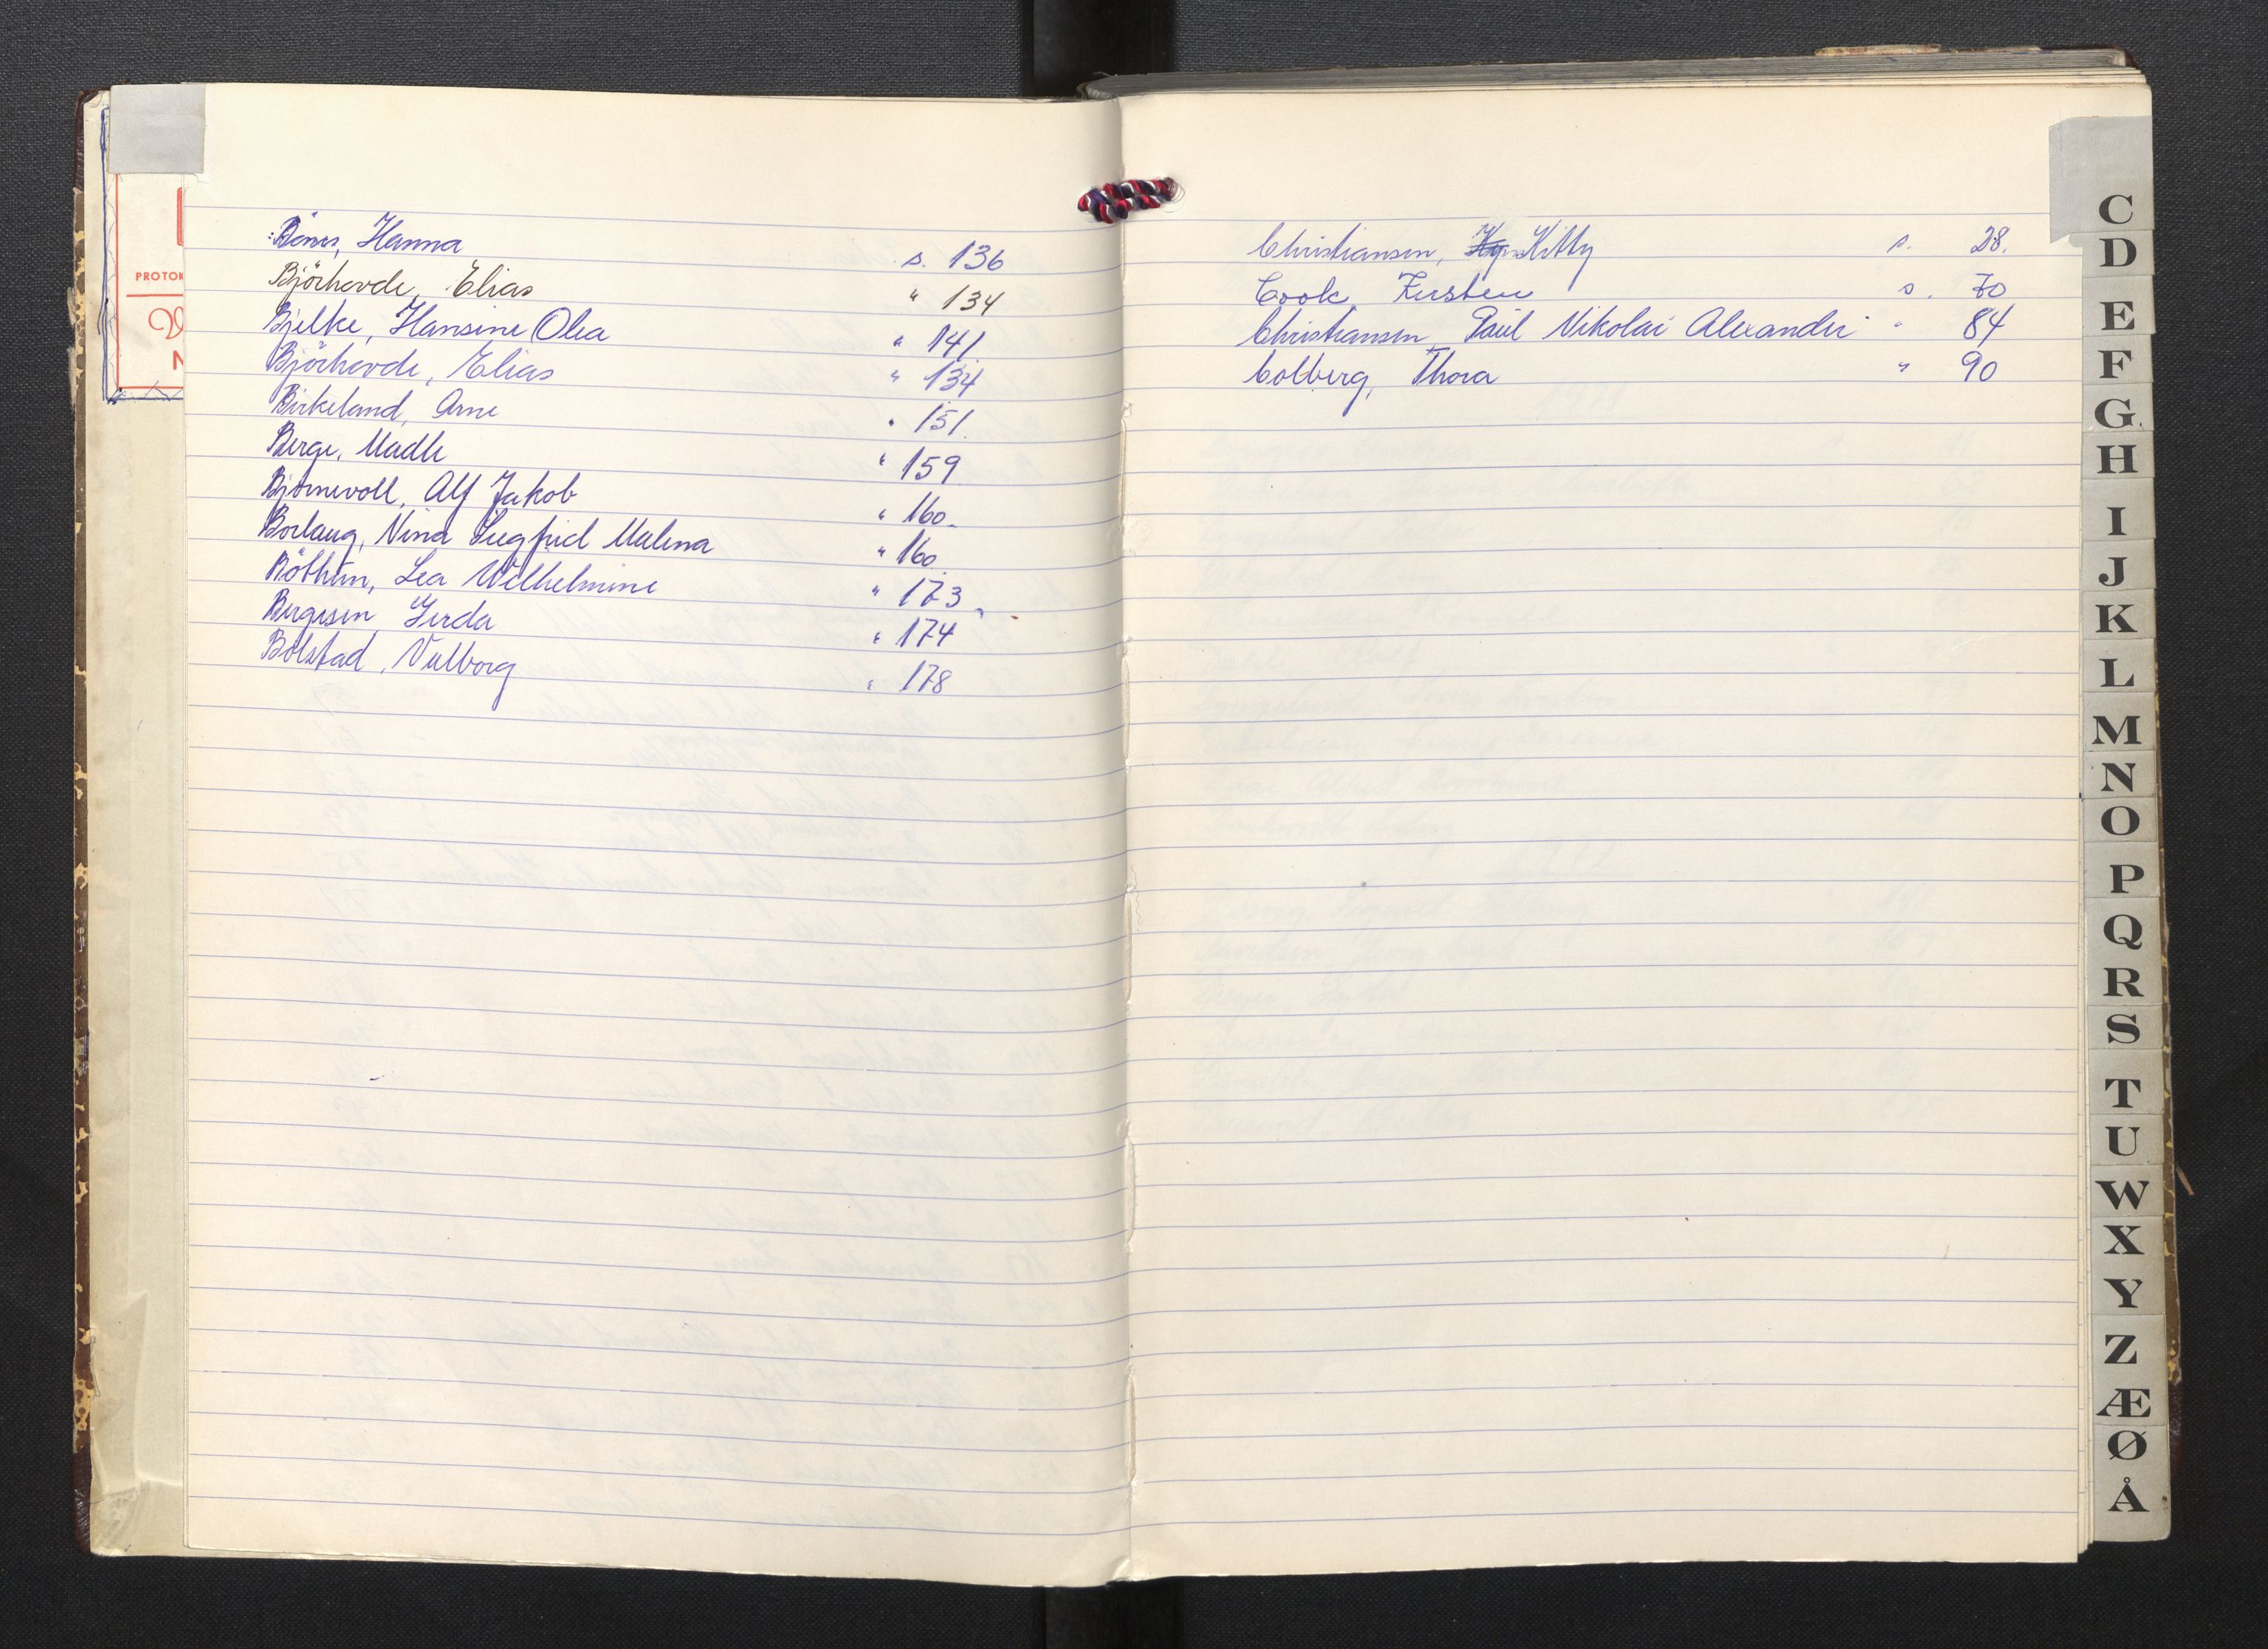 Bönes, Hanna s. 136
Björhovde, Elias " 134
Bjelke, Hansine Olea " 141.
Björhovde, Elias " 134
Birkeland, Arne " 151.
Berge, Madli " 159
Bjørnevoll, Alf Jakob " 160.
Borlaug, Nina Siegfrid Malena " 160.
Böthun, Lea Wilhelmine " 173
Bergesen Gerda " 174
Bolstad, Valborg " 178
PROTOK
N
Christiansen, Kitty s. 28.
Cook, Kirsten s. 70
Christiansen, Paul Nikolai Alexander " 84
Colberg, Thora " 90
C
D
E
F
G
H
I
J
K
L
M
N
O
P
Q
R
S
T
U
W
X
Y
Z
Æ
Ø
Å